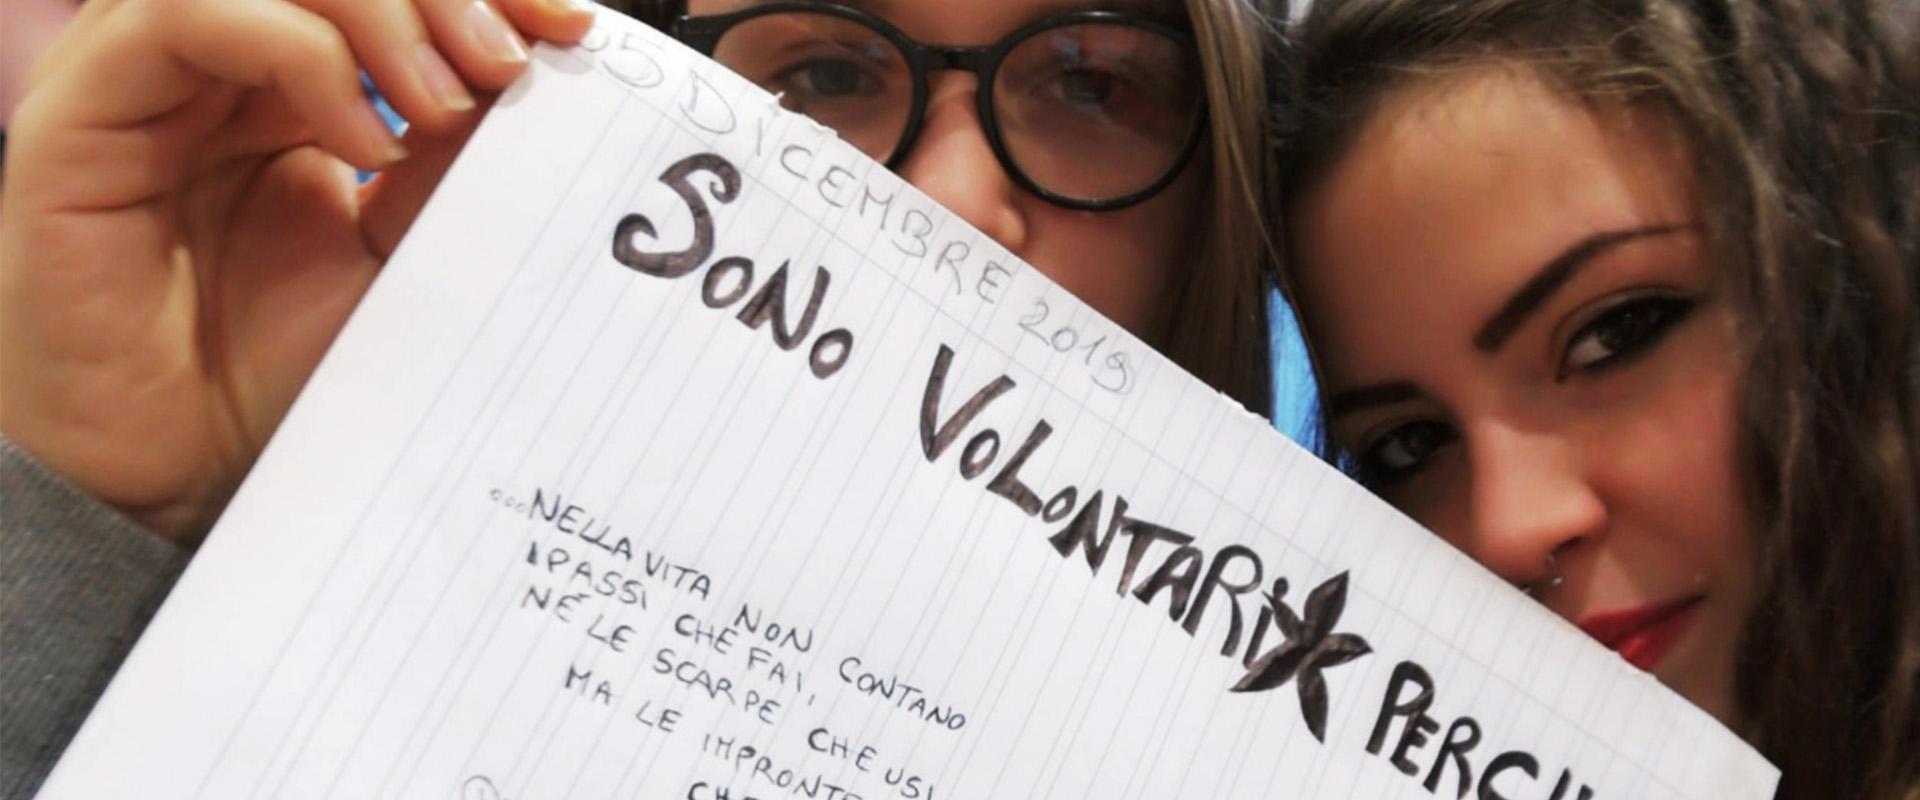 05 DICEMBRE 2019
SONO VOLONTARI* PERCH
...NELLA VITA NON CONTANO
I PASSI CHE FAI,
NÉ LE SCARPE CHE USI
MA LE IMPRONTE
CHE